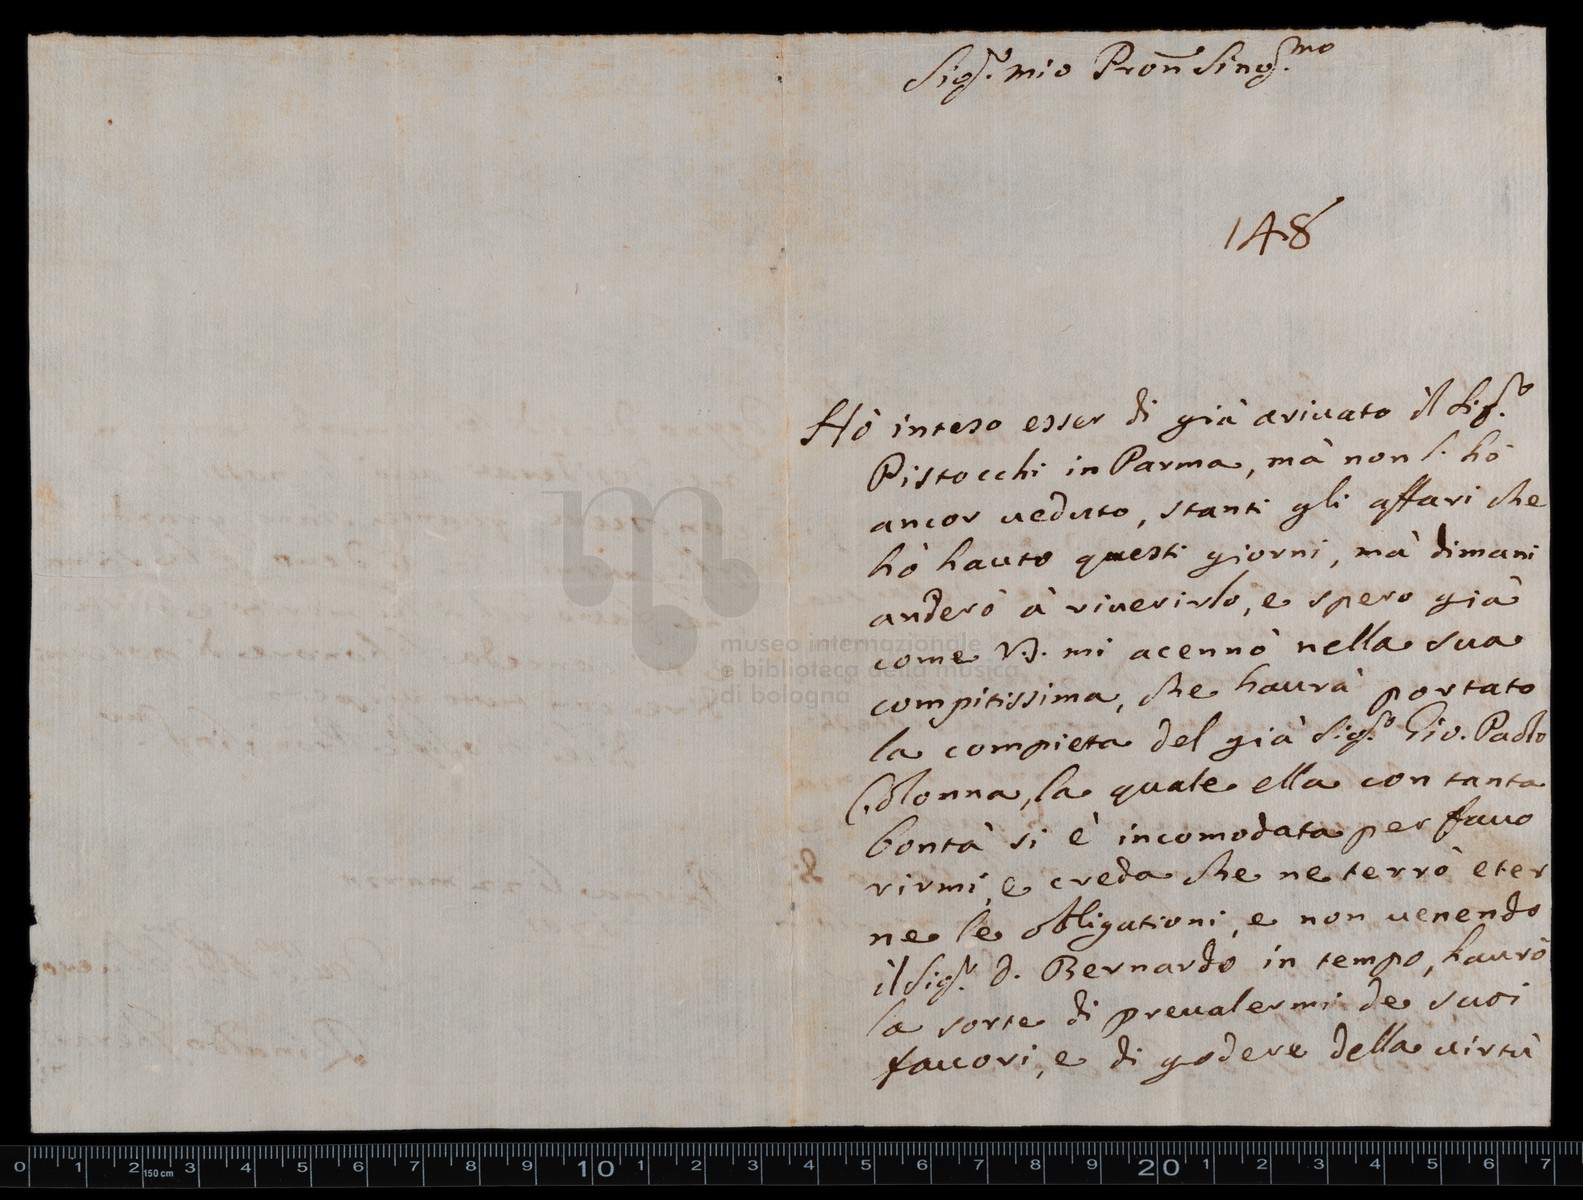 Sig.r mio Pron Sing.mo
148
Hò inteso esser di già arivato il Sig.r
Pistocchi in Parma, mà non l' hò
ancor veduto, stanti gli affari che
hò hauto questi giorni, mà dimani
anderò à riverirlo, e spero già
come V.S. mi acennò nella sua
compitissima, che haurà portato
la compieta del già Sig.r Gio. Paolo
Colonna, la quale ella con tanta
bontà si è incomodata per favo
rirmi, e creda che ne terrò eter
ne le obligationi, e non venendo
il Sig.r D. Bernardo in tempo, haurò
la sorte di prevalermi de suoi
favori, e di godere della virtù
museo internazionale
e biblioteca della musica
di bologna
0 1 2 150 cm 3 4 5 6 7 8 9 10 1 2 3 4 5 6 7 8 9 20 1 2 3 4 5 6 7